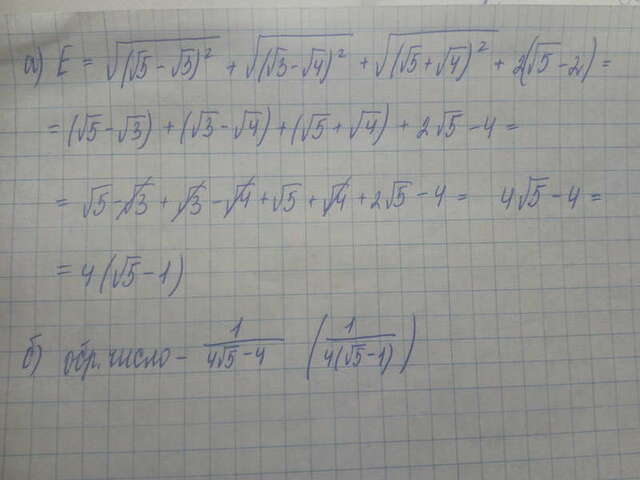 а) E = √(√5 - √3)² + √(√3 - √4)² + √(√5 + √4)² + 2(√5 - 2) =
= (√5 - √3) + (√3 - √4) + (√5 + √4) + 2√5 - 4 =
= √5 - √3 + √3 - √4 + √5 + √4 + 2√5 - 4 = 4√5 - 4 =
= 4(√5 - 1)
б) обр. число - 1/(4√5 - 4) (1/(4(√5 - 1)))